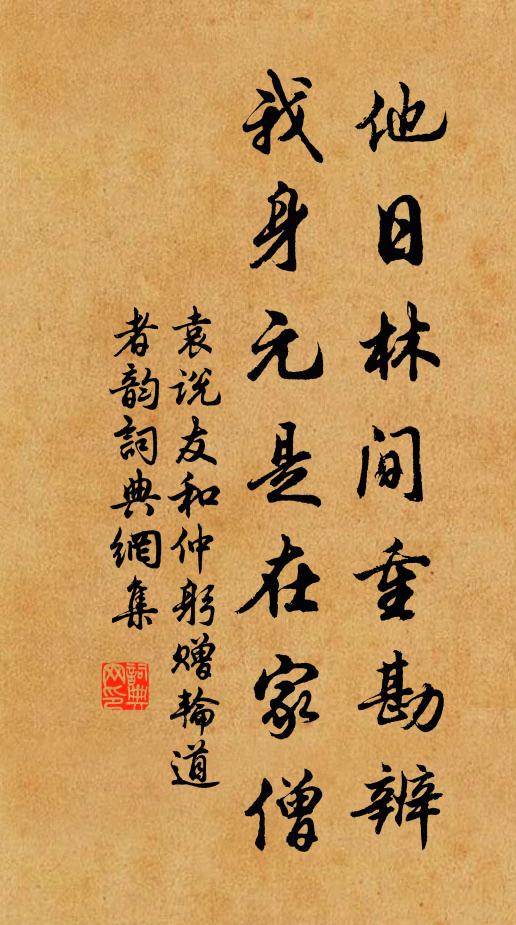 他日林間重勘辨
我身元是在家僧
袁说友和仲躬赠輪道
者韵詞典網集
詞典网印